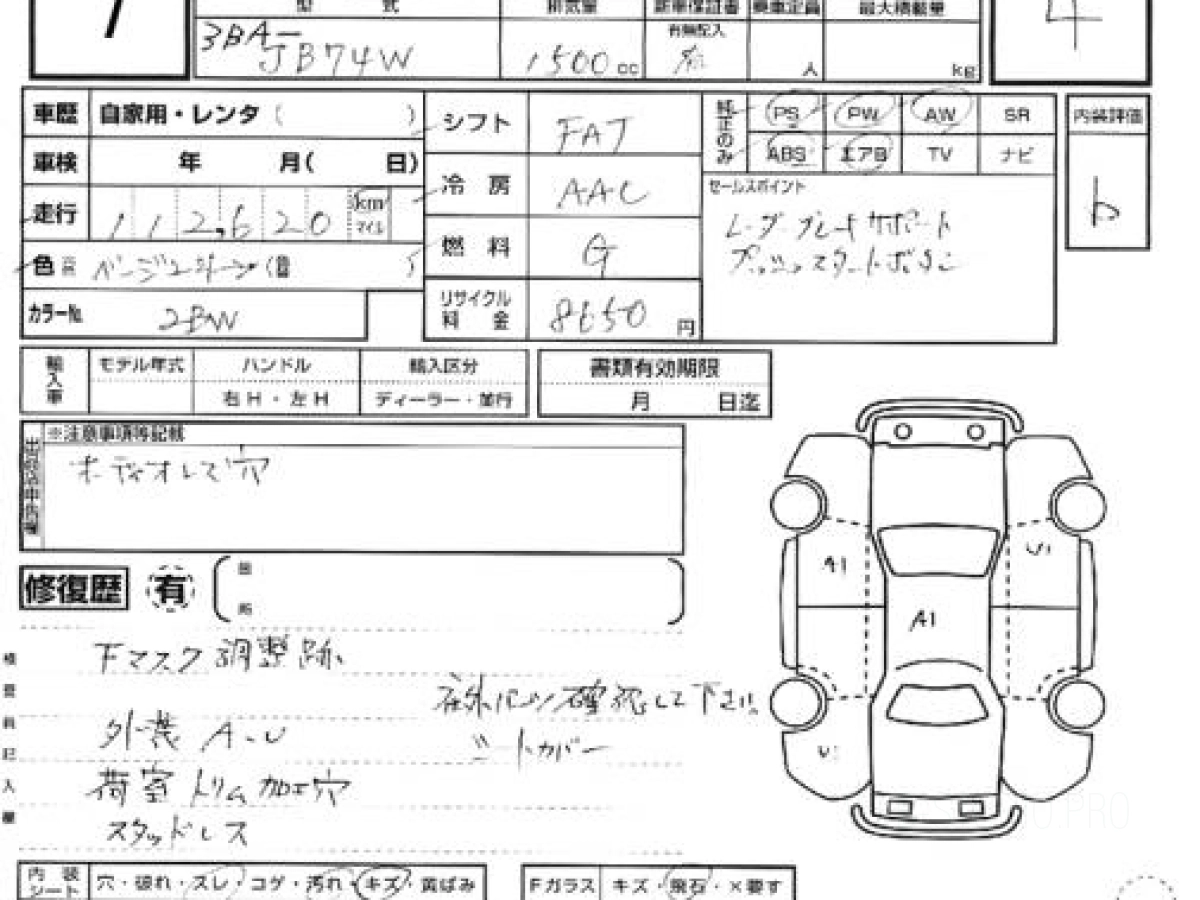 型 式 排気量 新車保証書 乗車定員 最大積載量
7 3BA- 有無記入 4
JB74W 1500 cc 人 kg
車歴 自家用・レンタ ( ) シフト FAT 純正のみ PS PW AW SR 内装評価
車検 年 月( 日) ABS エアB TV ナビ
冷 房 AAC セールスポイント b
走行 112,620 km マイル レーダーブレーキサポート
燃 料 G プッシュスタートボタン
色 ベージュ
カラーNo. 2BW リサイクル料金 8650 円
輸入車 モデル年式 ハンドル 輸入区分 書類有効期限
右H・左H ディーラー・並行 月 日迄
※注意事項等記載
オーディオレス 穴
修復歴 有
箇所
A1 U1
A1
下マスク調整跡
社外パーツ確認して下さい。
外装 A・U シートカバー
荷室トリム加工穴 U1
スタッドレス
内装シート 穴・破れ・スレ・コゲ・汚れ・キズ・黄ばみ Fガラス キズ・飛石・×要す